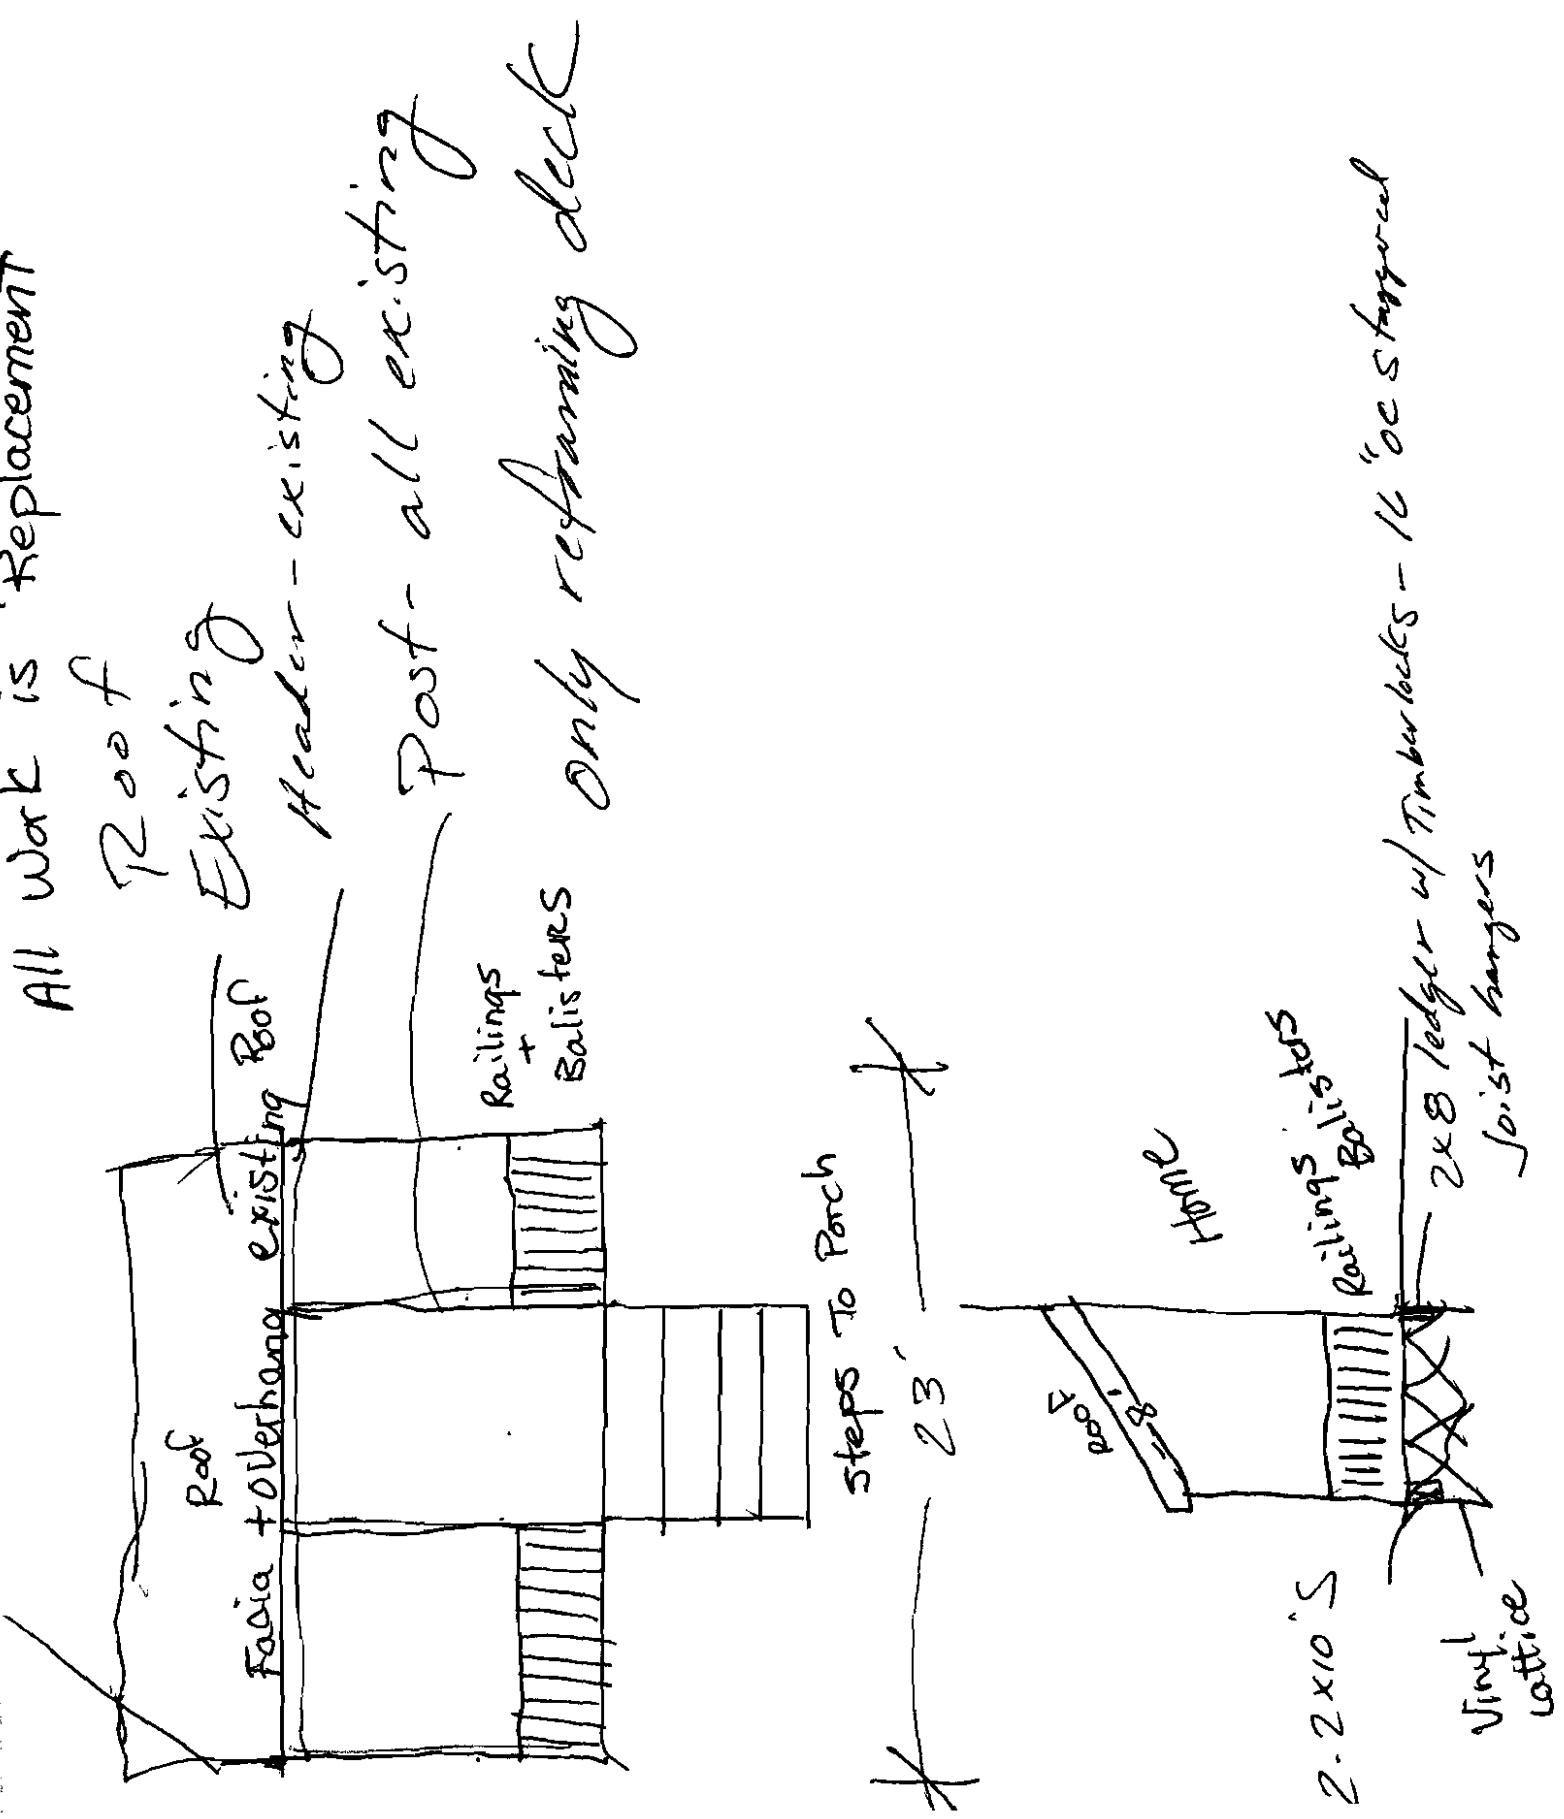 All Work is Replacement
Roof
Existing
Header - existing
Post - all existing
only reframing deck
Roof
Facia + overhang existing
Roof
Railings
+
Balisters
Steps To Porch
23'
Roof
8'
Home
Railings
Balistors
2x8 ledger w/ Timberlocks - 16" oc staggered
Joist hangers
2.2x10's
Vinyl
Lattice